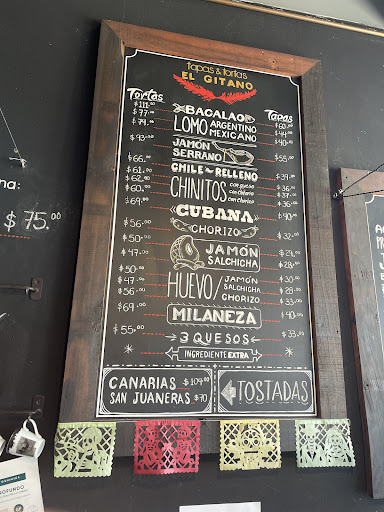 tapas & tortas
EL GITANO
Tortas
Tapas
$111.00 BACALAO $60.00
$77.00 LOMO ARGENTINO $44.00
$79.00 MEXICANO $40.00
$93.00 JAMÓN SERRANO $55.00
$66.00 CHILE RELLENO $39.00
$61.00 CHINITOS con queso $36.00
$62.00
$60.00
$69.00 CUBANA $40.00
$56.00 CHORIZO $32.00
$50.00 JAMÓN
$47.00 SALCHICHA $28.00
$50.00 HUEVO/ JAMÓN $30.00
$47.00 SALCHICHA $28.00
$56.00 CHORIZO $33.00
$69.00 MILANEZA $40.00
$55.00 3 QUESOS $33.00
INGREDIENTE EXTRA
CANARIAS $104.00
SAN JUANERAS $70
TOSTADAS
na:
$75.00